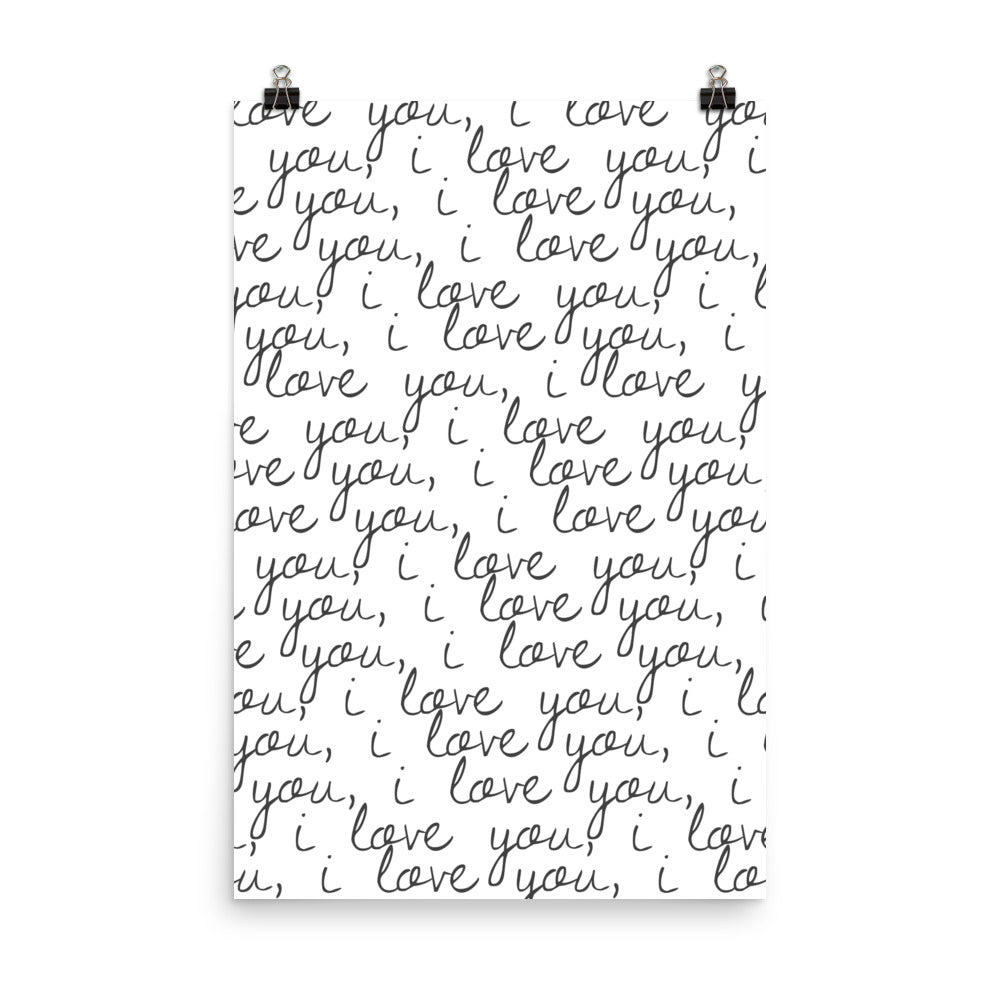 love you, i love you
you, i love you, i
e you, i love you,
ve you, i love you,
you, i love you, i l
you, i love you, i
love you, i love y
e you, i love you,
ve you, i love you,
ove you, i love you
you, i love you, i
you, i love you, i
e you, i love you,
ou, i love you, i lo
you, i love you, i
you, i love you, i
, i love you, i love
u, i love you, i lo